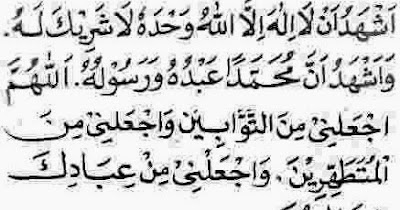 اَشْهَدُ اَنْ لَا اِلٰهَ اِلَّا اللهُ وَحْدَهُ لَا شَرِيْكَ لَهُ.
وَاَشْهَدُ اَنَّ مُحَمَّدًا عَبْدُهُ وَرَسُوْلُهُ. اَللّٰهُمَّ
اجْعَلْنِىْ مِنَ التَّوَّابِيْنَ وَاجْعَلْنِىْ مِنَ
الْمُتَطَهِّرِيْنَ. وَاجْعَلْنِىْ مِنْ عِبَادِكَ